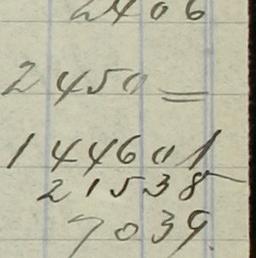 2406
2450 =
144601
21538
7039